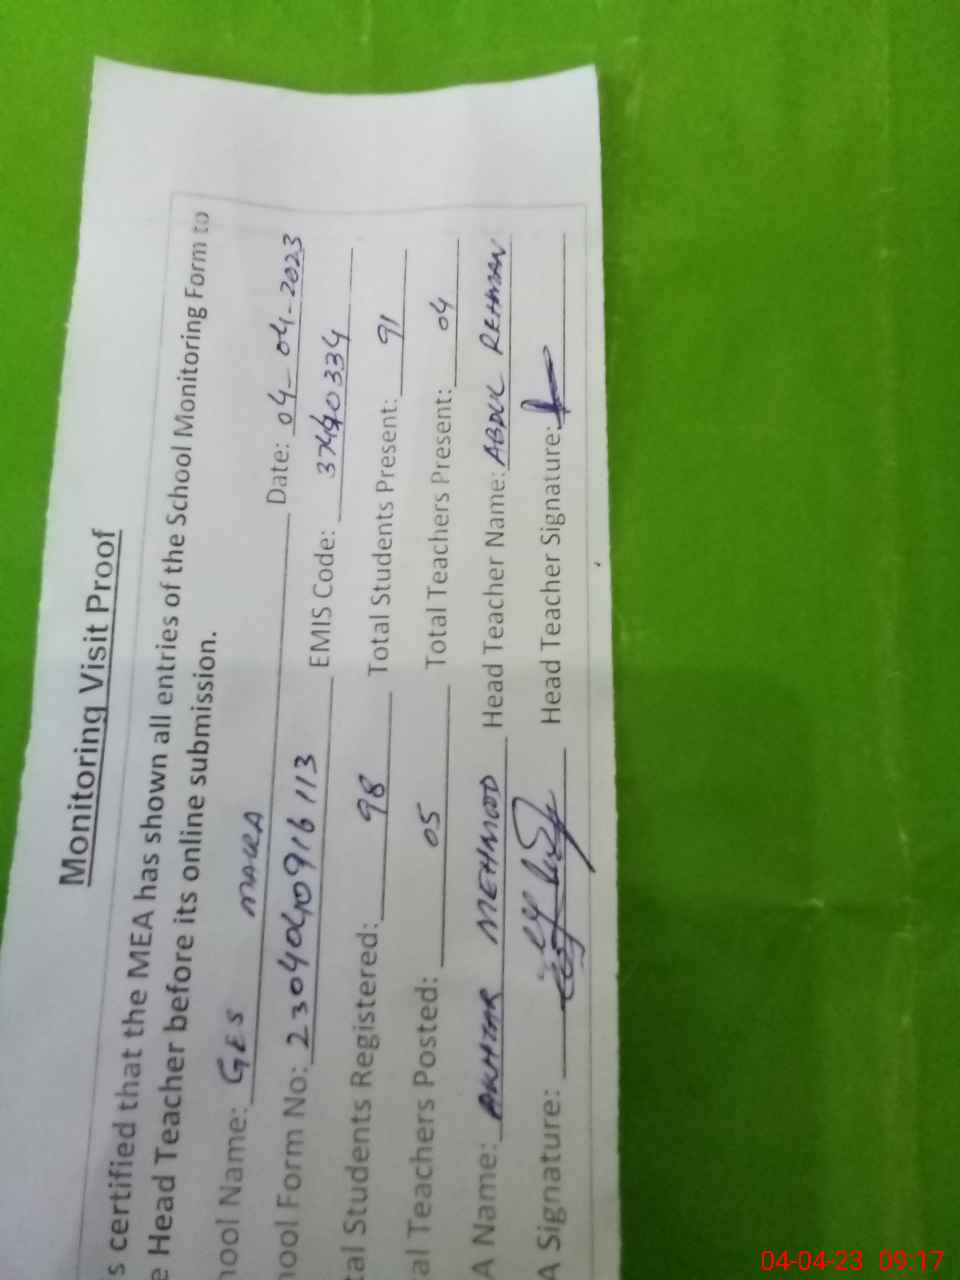 Monitoring Visit Proof
s certified that the MEA has shown all entries of the School Monitoring Form to
e Head Teacher before its online submission.
hool Name: GES MAIRA Date: 04-04-2023
hool Form No: 2304040916113 EMIS Code: 37440334
tal Students Registered: 98 Total Students Present: 91
al Teachers Posted: 05 Total Teachers Present: 04
A Name: AKHTAR MEHMOOD Head Teacher Name: ABDUL REHMAN
A Signature: Head Teacher Signature:
04-04-23 09:17